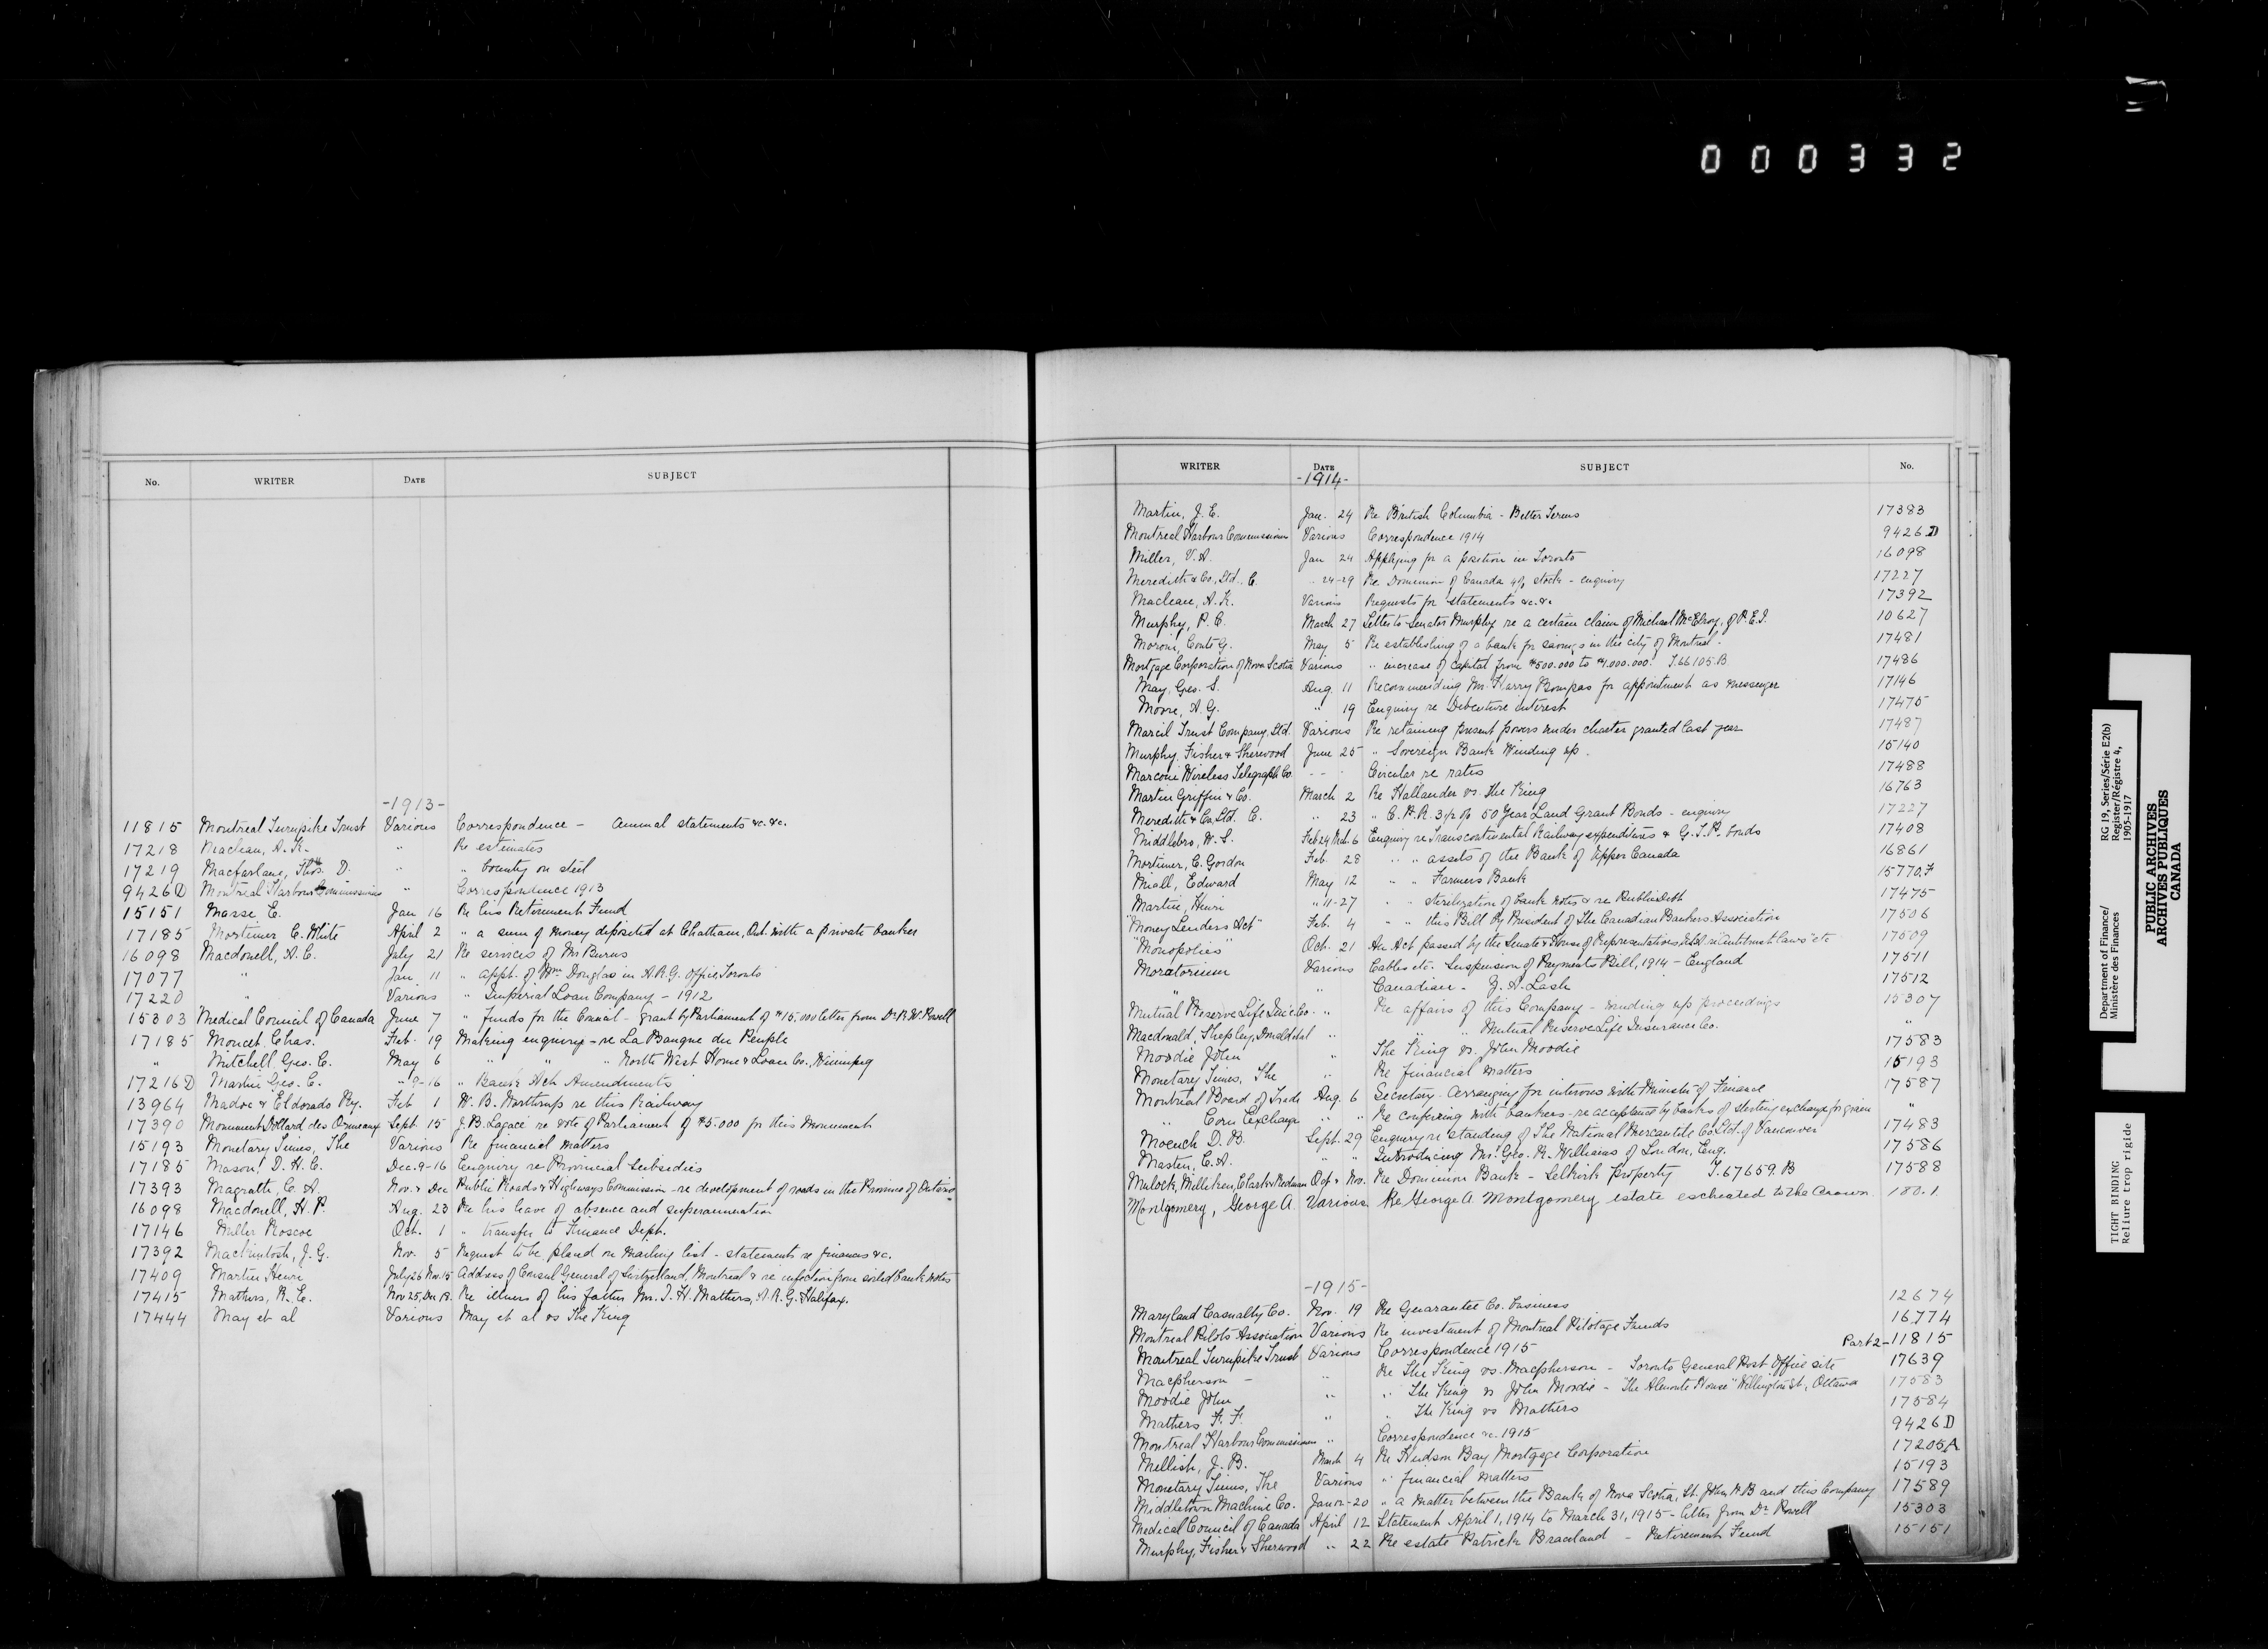 000332
No. WRITER DATE SUBJECT
-1913-
11815 Montreal Turnpike Trust Various Correspondence - Annual statements &c. &c.
17218 Maclean, A. K. " Re estimates
17219 Macfarlane, Thos. D. " " bounty on steel
9426D Montreal Harbour Commissioners " Correspondence 1913
15151 Masse E. Jan 16 Re his Retirement Fund
17185 Mortimer C. White April 2 " a sum of money deposited at Chatham, Ont. with a private banker
16098 Macdonell, A. C. July 21 Re services of Mr Burns
17077 " Jan 11 " appt. of Wm Douglas in A.R.G. Office, Toronto
17220 " Various " Imperial Loan Company - 1912
15303 Medical Council of Canada June 7 " Funds for the Council - grant by Parliament of $15,000 letter from Dr. R. W. Powell
17185 Moncet Chas. Feb. 19 Making enquiry - re La Banque du Peuple
" Mitchell Geo. C. May 6 " " " North West Home & Loan Co., Winnipeg
17216D Martin Geo. C. " 9-16 " Bank Act Amendments
13964 Madoc & Eldorado Ry. Feb 1 W. B. Northrup re this Railway
17390 Monument Dollard des Ormeaux Sept. 15 J. B. Lagacé re vote of Parliament of $5.000 for this Monument
15193 Monetary Times, The Various Re financial matters
17185 Mason D. H. C. Dec. 9-16 Enquiry re Provincial Subsidies
17393 Magrath, C. A. Nov. & Dec Public Roads & Highways Commission - re development of roads in the Province of Ontario
16098 Macdonell, A. P. Aug. 23 Re his leave of absence and superannuation
17146 Miller Roscoe Oct. 1 " transfer to Finance Dept.
17392 Mackintosh, J. G. Nov. 5 Request to be placed on Mailing list - statements re finances &c.
17409 Martin Henri July 26 Nov. 15 Address of Consul General of Switzerland, Montreal & re infection from soiled bank notes
17415 Mathers, R. E. Nov 25, Dec 18. Re illness of his father Mr. I. H. Mathers, A. R. G. Halifax.
17444 May et al Various May et al vs The King
WRITER DATE SUBJECT No.
-1914-
Martin, J. E. Jan. 24 Re British Columbia - Better Terms 17383
Montreal Harbour Commission Various Correspondence 1914 9426D
Miller, V. A. Jan 24 Applying for a position in Toronto 16098
Meredith & Co., Ltd., C. " 24-29 Re Dominion of Canada 4% stock - enquiry 17227
Maclean, A. K. Various Requests for statements &c. &c 17392
Murphy, P. C. March 27 Letter to Senator Murphy re a certain claim of Michael McElroy, of P. E. I. 10627
Moroni, Conte G. May 5 Re establishing of a bank for savings in the city of Montreal. 17481
Mortgage Corporation of Nova Scotia Various " increase of capital from $500.000 to $1.000.000. T.66105.B 17486
May, Geo. S. Aug. 11 Recommending Mr. Harry Bompas for appointment as messenger 17146
Moore, A. G. " 19 Enquiry re Debenture interest 17475
Marcil Trust Company, Ltd. Various Re retaining present powers under charter granted last year 17487
Murphy, Fisher & Sherwood June 25 " Sovereign Bank Winding up. 15140
Marconi Wireless Telegraph Co. - - - Circular re rates 17488
Martin Griffin & Co. March 2 Re Hallander vs. The King 16763
Meredith & Co., Ltd. C. " 23 " C. P. R. 3½% 50 Year Land Grant Bonds - enquiry 17227
Middlebro, W. S. Feb 24 Mch. 6 Enquiry re Transcontinental Railway expenditures & G. T. P. bonds 17408
Mortimer, C. Gordon Feb. 28 " " assets of the Bank of Upper Canada 16861
Miall, Edward May 12 " " Farmers Bank 15770.F
Martin, Henri " 11-27 " " sterilization of bank notes & re Public Debt 17475
"Money Lenders Act" Feb. 4 " " this Bill by President of The Canadian Bankers Association 17506
"Monopolies" Oct. 21 An Act passed by the Senate & House of Representatives U.S.A. re "Antitrust laws" etc 17509
Moratorium Various Cables etc. Suspension of Payments Bill, 1914 - England 17511
" " Canadian - Z. A. Lash 17512
Mutual Reserve Life Ins'ce Co. " Re affairs of this Company - winding up proceedings 15307
Macdonald, Shepley, Donald et al " " " Mutual Reserve Life Insurance Co. "
Moodie John " The King vs. John Moodie 17583
Monetary Times, The " Re financial matters 15193
Montreal Board of Trade Aug. 6 Secretary - arranging for interview with Minister of Finance 17587
" Corn Exchange " " Re conferring with bankers - re acceptance by banks of sterling exchange for grain "
Moench D. B. Sept. 29 Enquiry re standing of The National Mercantile Co. Ltd. of Vancouver 17483
Masten, C. A. " " Introducing Mr. Geo. R. Williams of London, Eng. 17586
Mulock, Milliken, Clark & Redman Oct. & Nov. Re Dominion Bank - Selkirk property T.67659.B 17588
Montgomery, George A. Various Re George A. Montgomery estate escheated to the Crown 180.1.
-1915-
Maryland Casualty Co. Nov. 19 Re Guarantee Co. business 12674
Montreal Pilots Association Various Re investment of Montreal Pilotage Funds 16774
Montreal Turnpike Trust Various Correspondence 1915 Part 2 - 11815
Macpherson - " Re The King vs. Macpherson - Toronto General Post Office site 17639
Moodie John " " The King vs John Moodie - "The Almonte House" Wellington St., Ottawa 17583
Mathers F. F. " " The King vs Mathers 17584
Montreal Harbour Commission " Correspondence &c. 1915 9426D
Mellish, J. B. March 4 Re Hudson Bay Mortgage Corporation 17205A
Monetary Times, The Various " financial matters 15193
Middletown Machine Co. Jan 12-20 " a matter between the Bank of Nova Scotia, St. John, N.B. and this Company 17589
Medical Council of Canada April 12 Statement April 1, 1914 to March 31, 1915 - letter from Dr Powell 15303
Murphy, Fisher & Sherwood " 22 Re estate Patrick Braceland - Retirement Fund 15151
Department of Finance/
Ministère des Finances
RG 19, Series/Série E2(b)
Register/Régistre 4,
1905-1917
PUBLIC ARCHIVES
ARCHIVES PUBLIQUES
CANADA
TIGHT BINDING
Reliure trop rigide